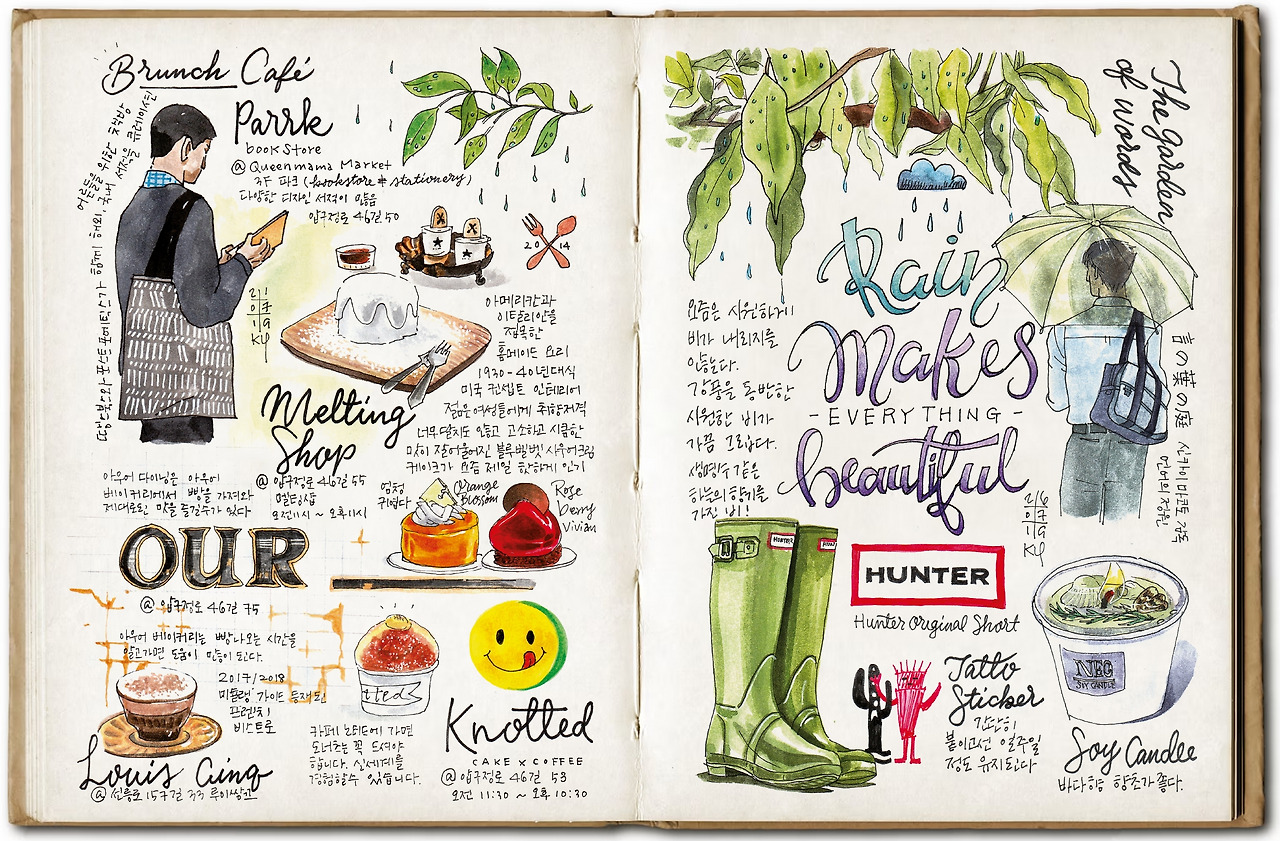 Brunch Café
Parrk
bookstore
@ Queenmama Market
3F 파크 (bookstore & stationery)
다양한 디자인 서적이 많음
압구정로 46길 50
어른들을 위한 책방
해외, 국내 서적을 큐레이션
땡스북스와 포스트 포에틱스가 함께
20 14
2017
19
KY
아메리칸과
이탈리안을
접목한
홈메이드 요리
1930-40년대식
미국 컨셉트 인테리어
젊은 여성들에게 취향저격
너무 달지도 않고 고소하고 시큼한
맛이 잘 어울어진 블루벨벳 사우어크림
케이크가 요즘 제일 핫하게 인기
Melting
Shop
@ 압구정로 46길 55
멜팅샵
오전 11시 ~ 오후 11시
아우어 다이닝은 아우어
베이커리에서 빵을 가져와
제대로된 맛을 즐길수가 있다
엄청
귀엽다
Orange
Blossom
Rose
Derry
Vivian
OUR
@ 압구정로 46길 75
아우어 베이커리는 빵 나오는 시간을
알고가면 도움이 많이 된다.
2017/2018
미슐랭 가이드 등재된
프렌치
비스트로
Louis Cinq
@ 선릉로 157길 33 루이쌍끄
tted
카페 노티드에 가면
도너츠는 꼭 드셔야
합니다. 신세계를
경험할수 있습니다.
Knotted
CAKE X COFFEE
@ 압구정로 46길 53
오전 11:30 ~ 오후 10:30
The Garden
of words
Rain
Makes
- EVERYTHING -
beautiful
요즘은 시원하게
비가 내리지를
않는다.
강풍을 동반한
시원한 비가
가끔 그립다.
생명수 같은
하늘의 향기를
가진 비!
言の葉の庭
신카이 마코토 감독
언어의 정원
2017
19
KY
HUNTER
HUNTER
Hunter Original Short
Tatto
Sticker
간단히
붙이고선 일주일
정도 유지된다
NEG
SOY CANDLE
Soy Candle
바다향 향초가 좋다.